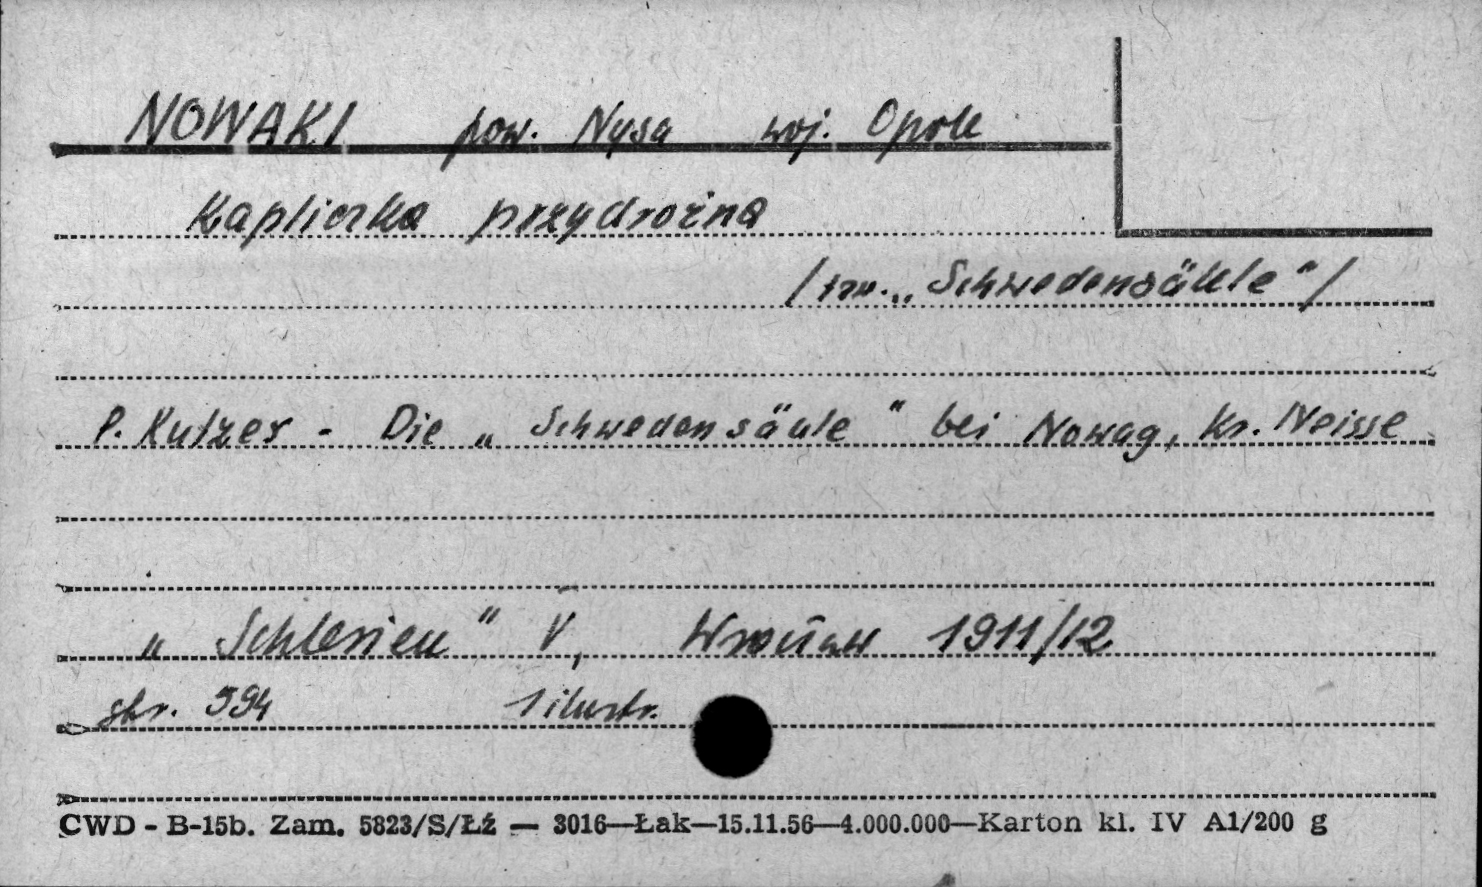 NOWAKI pow. Nysa woj. Opole
Kapliczka przydrożna
/tzw. „Schwedensäule"/
P. Kutzer - Die „Schwedensäule" bei Nowag, Kr. Neisse
„Schlesien" V, Wrocław 1911/12
str. 594 1 ilustr.
CWD - B-15b. Zam. 5823/S/Łź — 3016—Łak—15.11.56—4.000.000—Karton kl. IV A1/200 g